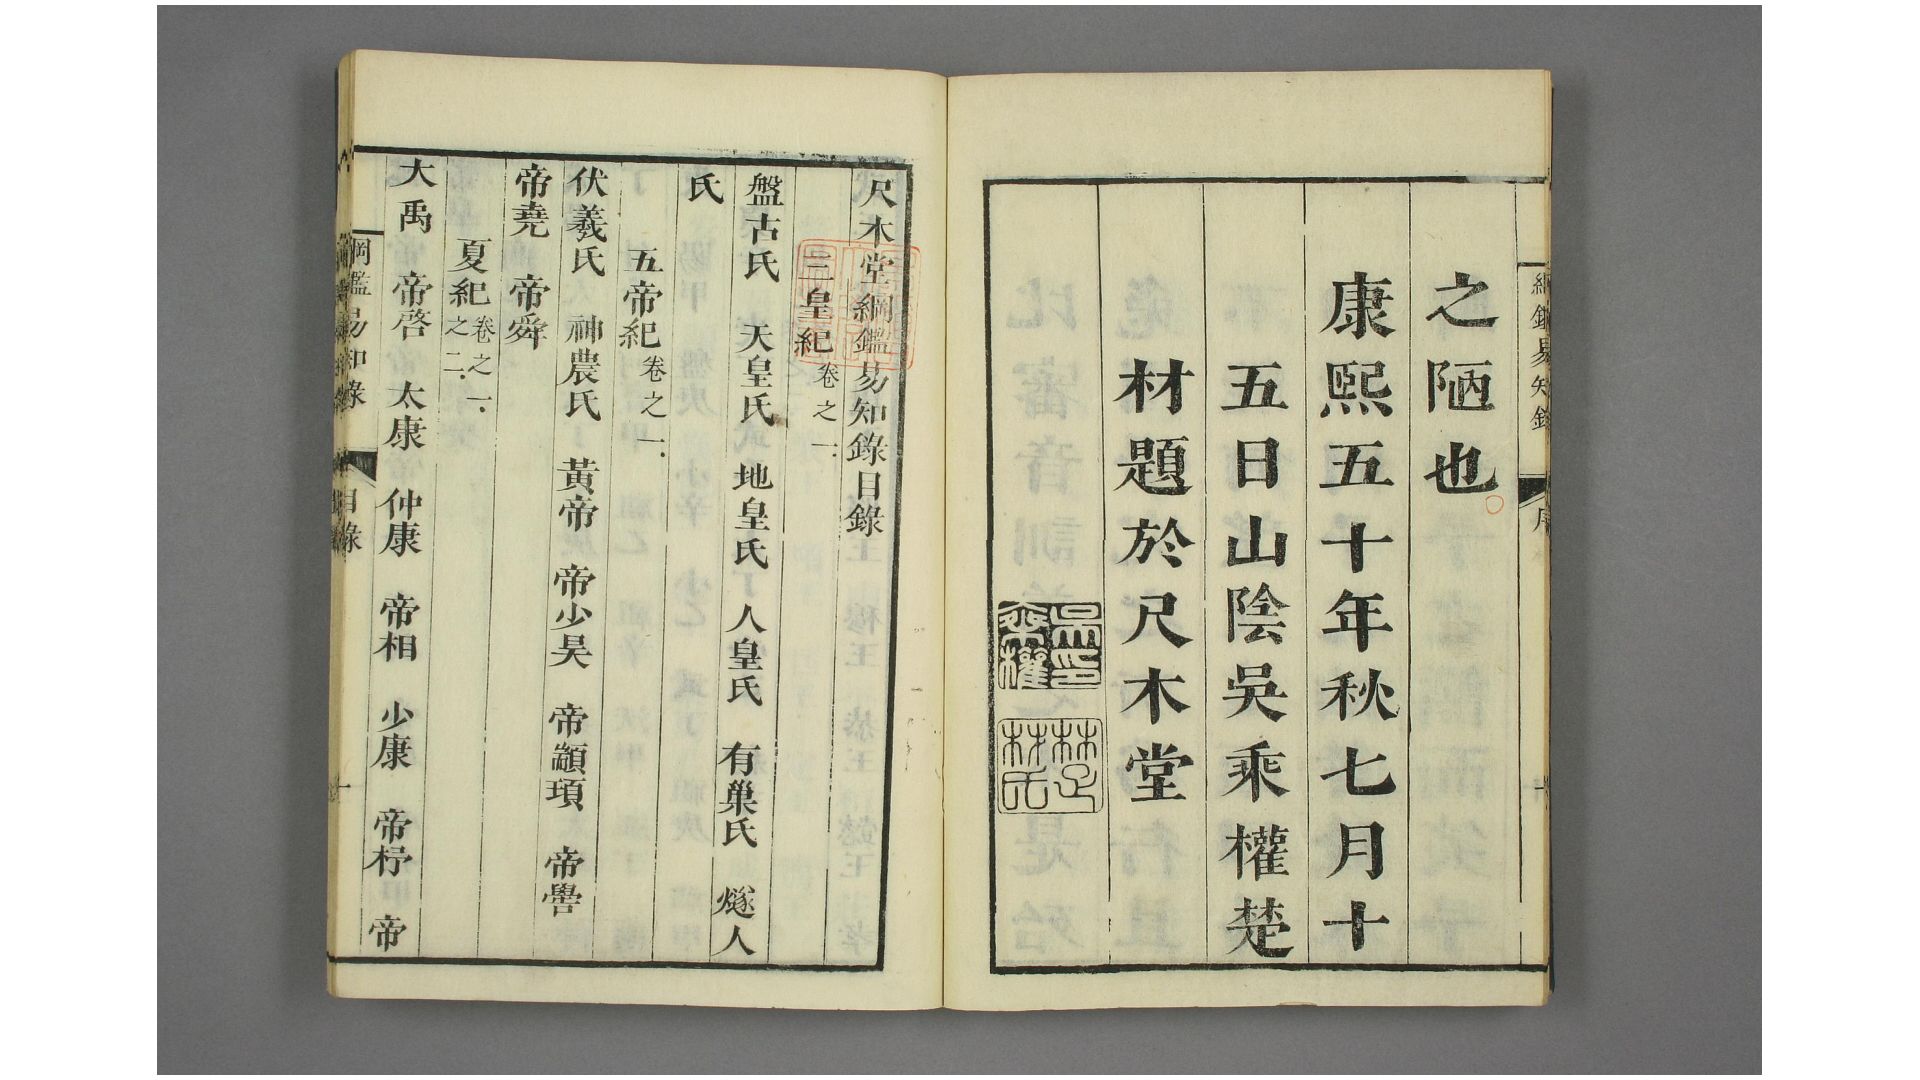 綱鑑易知錄
序
之陋也
康熙五十年秋七月十
五日山陰吳乘權楚
材題於尺木堂
吳印乘權
楚材氏
尺木堂綱鑑易知錄目錄
三皇紀卷之一
盤古氏 天皇氏 地皇氏 人皇氏 有巢氏 燧人
氏
五帝紀卷之一
伏羲氏 神農氏 黃帝 帝少昊 帝顓頊 帝嚳
帝堯 帝舜
夏紀卷之一、之二
大禹 帝啓 太康 仲康 帝相 少康 帝杼 帝
綱鑑易知錄
目錄
一